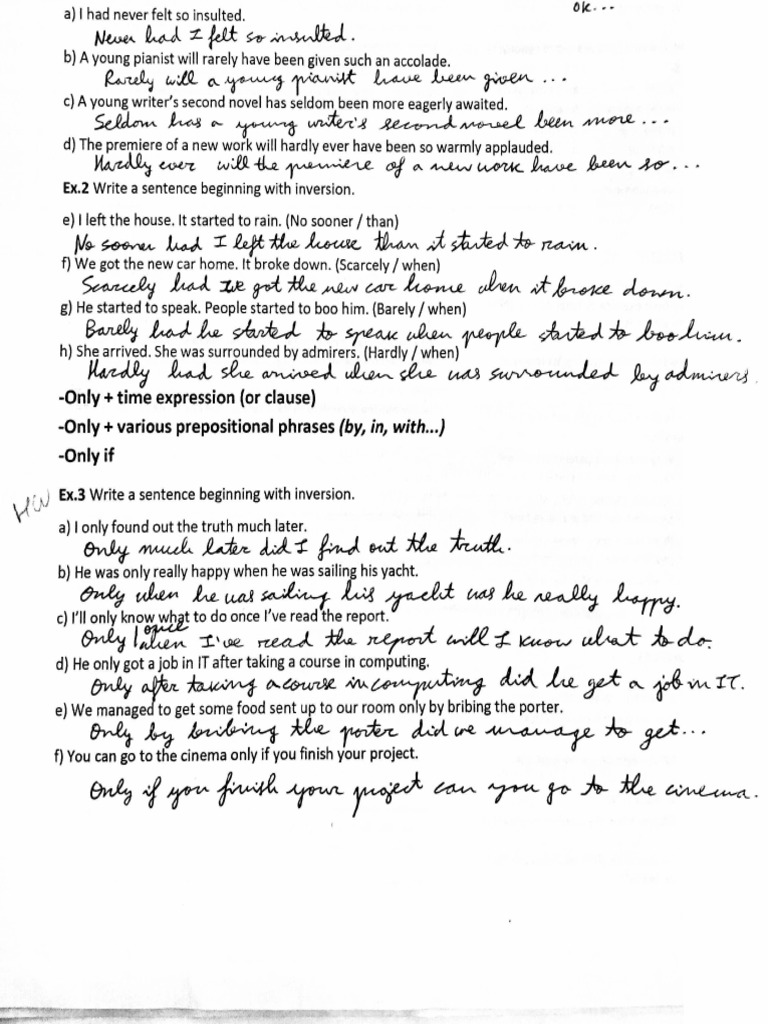 ok...
a) I had never felt so insulted.
Never had I felt so insulted.
b) A young pianist will rarely have been given such an accolade.
Rarely will a young pianist have been given ...
c) A young writer's second novel has seldom been more eagerly awaited.
Seldom has a young writer's second novel been more ...
d) The premiere of a new work will hardly ever have been so warmly applauded.
Hardly ever will the premiere of a new work have been so...
Ex.2 Write a sentence beginning with inversion.
e) I left the house. It started to rain. (No sooner / than)
No sooner had I left the house than it started to rain.
f) We got the new car home. It broke down. (Scarcely / when)
Scarcely had we got the new car home when it broke down.
g) He started to speak. People started to boo him. (Barely / when)
Barely had he started to speak when people started to boo him.
h) She arrived. She was surrounded by admirers. (Hardly / when)
Hardly had she arrived when she was surrounded by admirers.
-Only + time expression (or clause)
-Only + various prepositional phrases (by, in, with...)
-Only if
HW Ex.3 Write a sentence beginning with inversion.
a) I only found out the truth much later.
Only much later did I find out the truth.
b) He was only really happy when he was sailing his yacht.
Only when he was sailing his yacht was he really happy.
c) I'll only know what to do once I've read the report.
once
Only / when I've read the report will I know what to do.
d) He only got a job in IT after taking a course in computing.
Only after taking a course in computing did he get a job in IT.
e) We managed to get some food sent up to our room only by bribing the porter.
Only by bribing the porter did we manage to get...
f) You can go to the cinema only if you finish your project.
Only if you finish your project can you go to the cinema.